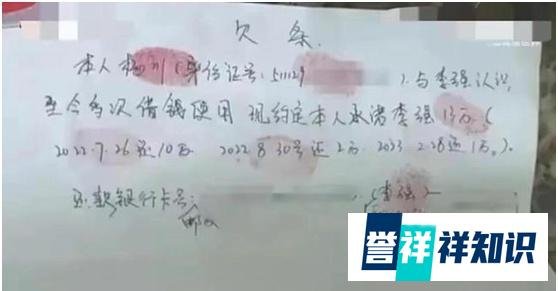 欠条.
本人杨川(身份证号:511129 ),与李强认识
至今多次借钱使用 现约定本人承诺李强13万(
2022.7.26还10万 2022.8.30号还2万 2023.2.28还1万。).
还款银行卡号: (李强)
邮政
誉祥祥知识